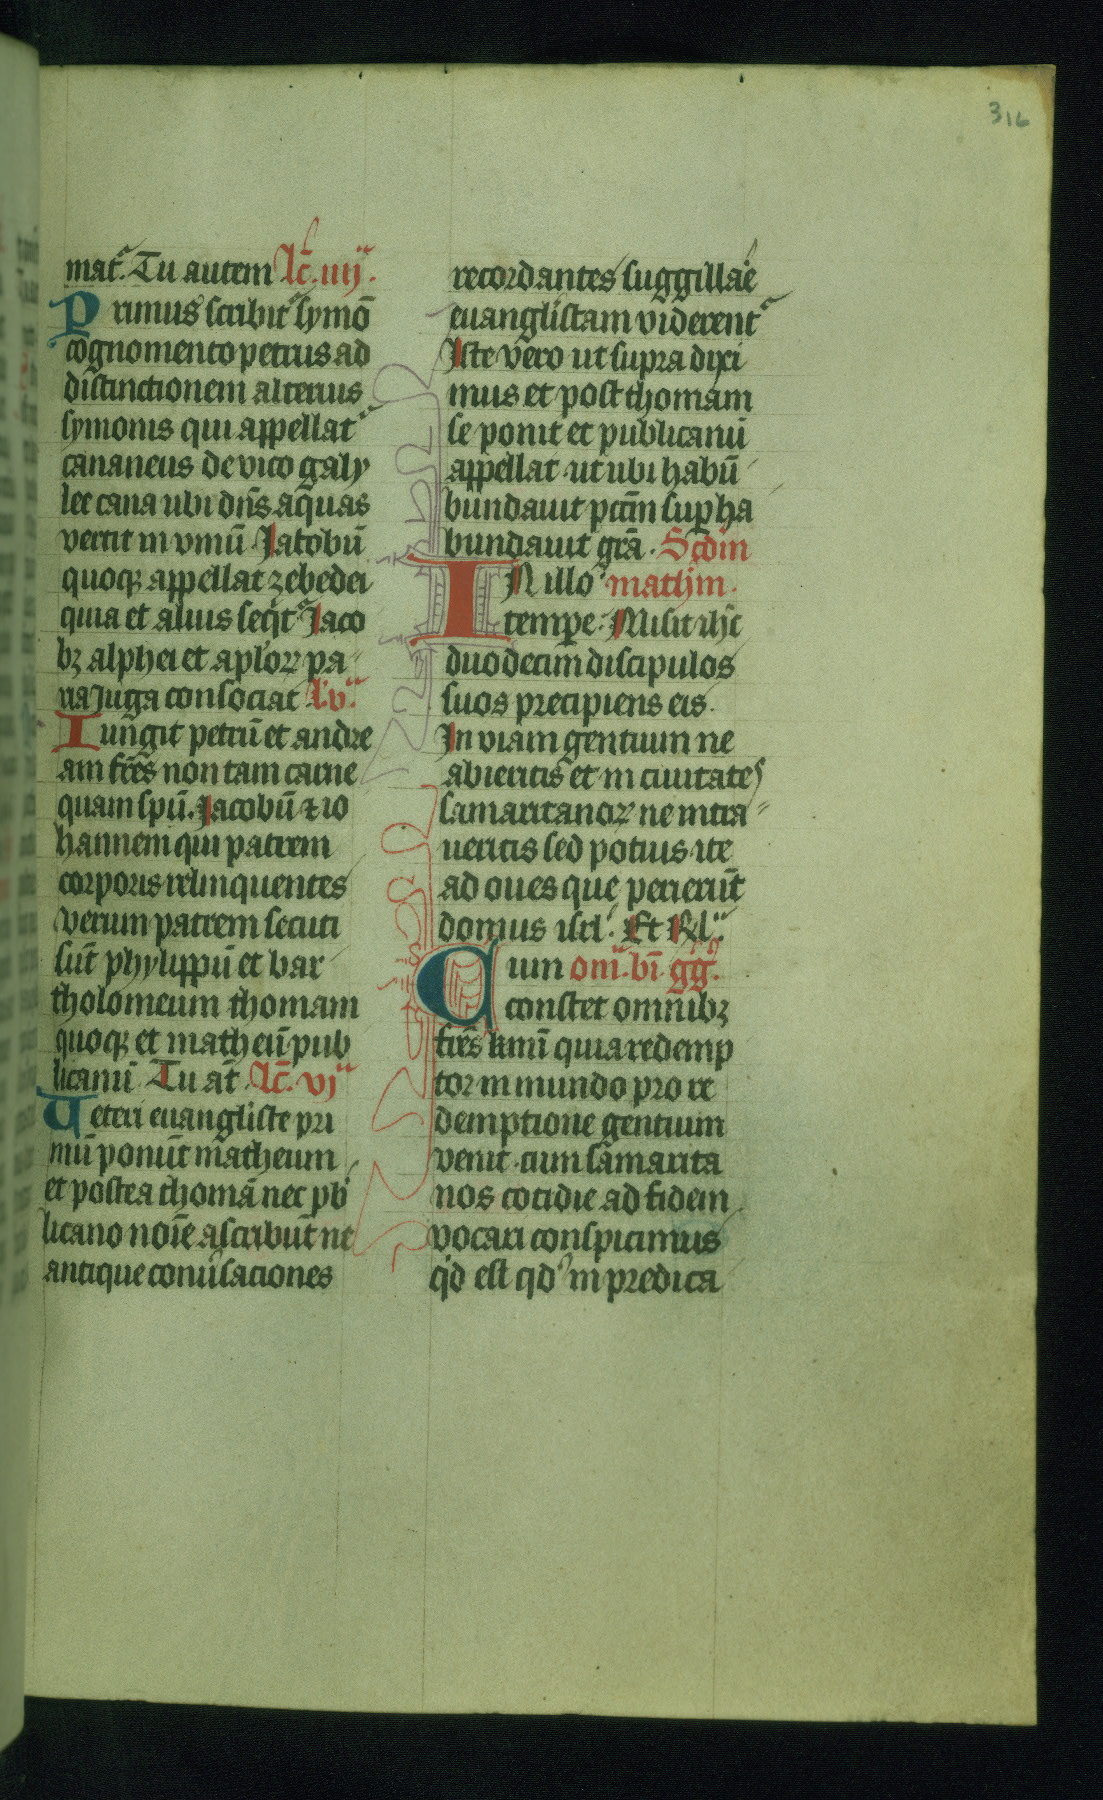 316
mat᷑. Tu autem Lc̄. iiij.
Primus scribit᷑ symō
cognomento petrus ad
distinctionem alterius
symonis qui appellat᷑
cananeus de vico galy
lee cana ubi dn̄s aquas
vertit in vinū. Jacobū
quoqꝫ appellat zebedei
quia et alius seqͥt᷑ Jaco
bꝫ alphei et aplo᷑ꝝ pa
ria juga consociat L. v.
Iungit petrū et andre
am fr̄es non tam carne
quam spū. Jacobū ⁊ io
hannem qui patrem
corporis relinquentes
verum patrem secuti
sūt phylippū et bar
tholomeum thomam
quoqꝫ et matheū pub
licanū Tu at̄. Lc̄. vj
Ueteri euangliste pri
mū ponūt matheum
et postea thomā nec pb
licano noīe ascribūt ne
antique conu᷑saciones
recordantes suggillare
euanglistam viderent᷑
Iste vero ut supra dixi
mus et post thomam
se ponit et publicanū
appellat ut ubi habū
bundauit pcc̄m suꝑ ha
bundauit grā. Scd̄m
IN illo mathm.
temꝑe. Misit ihc̄
duodecim discipulos
suos precipiens eis.
In viam gentium ne
abieritis et in ciuitates
samaritanoꝝ ne intra
ueritis sed potius ite
ad oues que perierūt
domus isrl. Et Rl.
Cum om̄. bī. gg.
constet omnibꝫ
fr̄es kmī quia redemp
tor in mundo pro re
demptione gentium
venit cum samarita
nos cotidie ad fidem
vocari conspicimus
qͥd est qd᷑ in predica